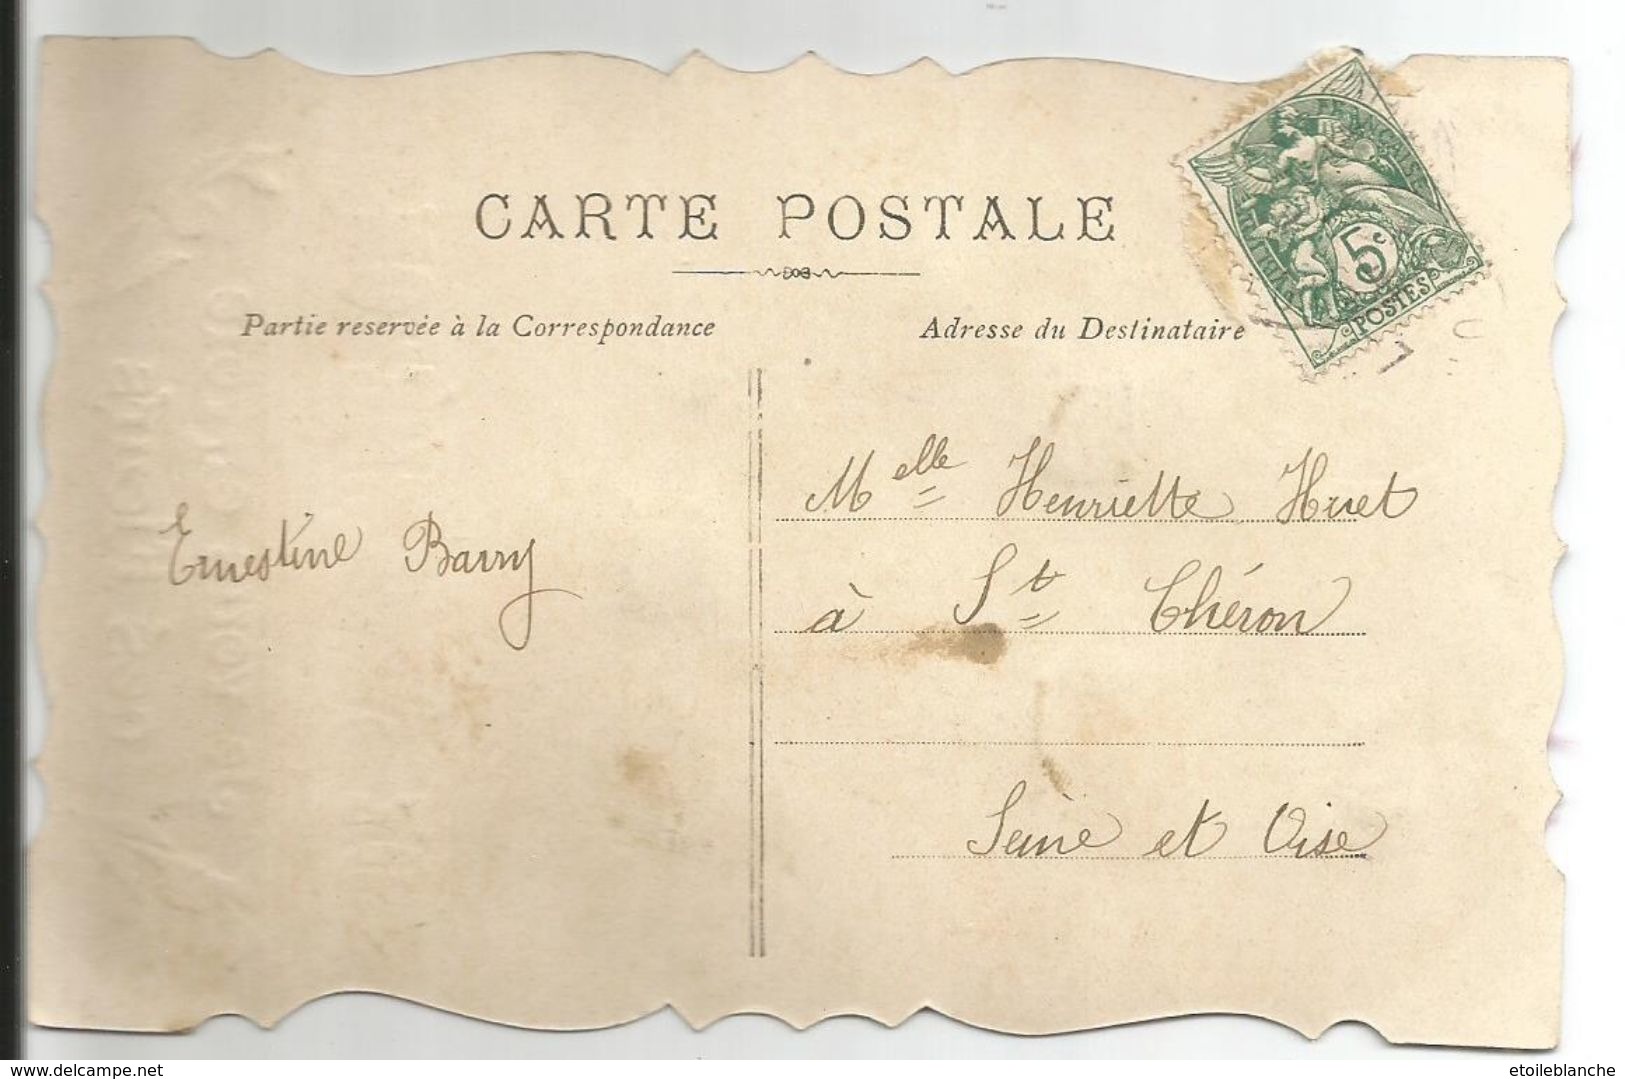 CARTE POSTALE
Partie reservée à la Correspondance
Adresse du Destinataire
5c
POSTES
Ernestine Barry
Melle Henriette Huet
à St Chéron
Seine et Oise
www.delcampe.net
etoileblanche